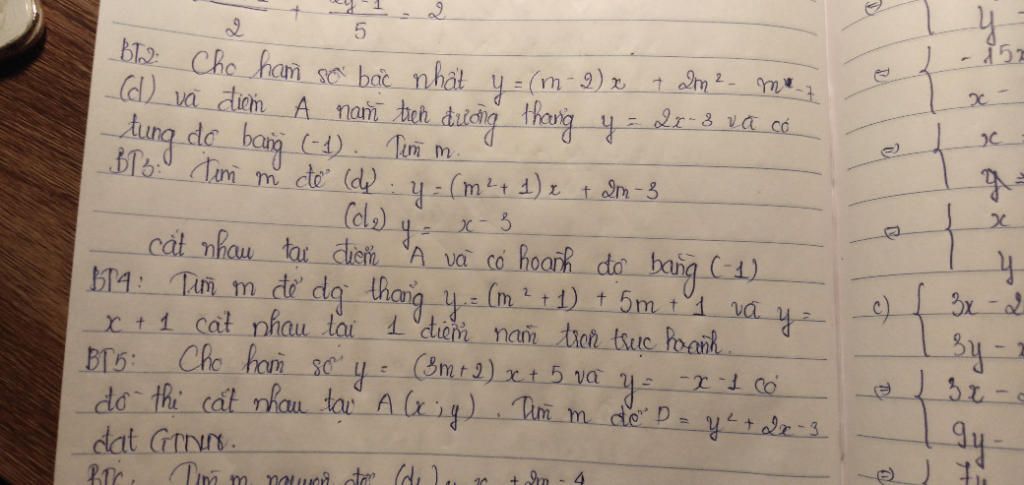 2 + xy-1 / 5 = 2
BT2: Cho hàm số bậc nhất y = (m-2)x + 2m² - m - 7
(d) và điểm A nằm trên đường thẳng y = 2x-3 và có
tung độ bằng (-1). Tìm m.
BT3: Tìm m để (d₁): y = (m²+1)x + 2m-3
(d₂) y = x-3
cắt nhau tại điểm A và có hoành độ bằng (-1)
BT4: Tìm m để đg thẳng y = (m²+1) + 5m + 1 và y =
x + 1 cắt nhau tại 1 điểm nằm trên trục hoành.
BT5: Cho hàm số y = (3m+2)x + 5 và y = -x-1 có
đồ thị cắt nhau tại A(x;y). Tìm m để P = y² + 2x-3
đạt GTNN.
Tìm m nguyên để (d₁) y x + 2m-4
⇔ { y
⇔ { -15x
x -
⇔ { x
y =
⇔ { x
y
c) { 3x - 2
3y - x
⇔ { 3x -
9y -
⇔ { 7y